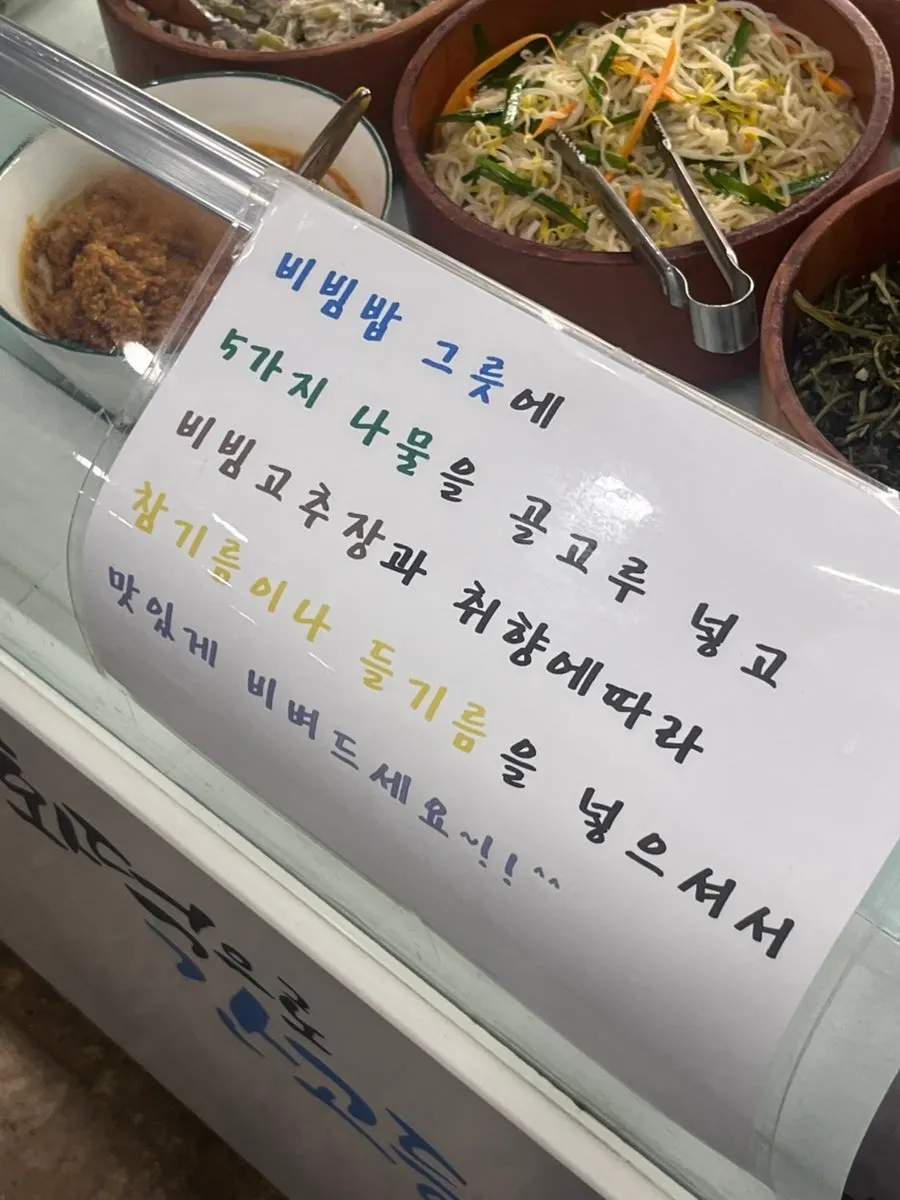 비빔밥 그릇에
5가지 나물을 골고루 넣고
비빔고추장과 취향에따라
참기름이나 들기름을 넣으셔서
맛있게 비벼드세요~!! ^^